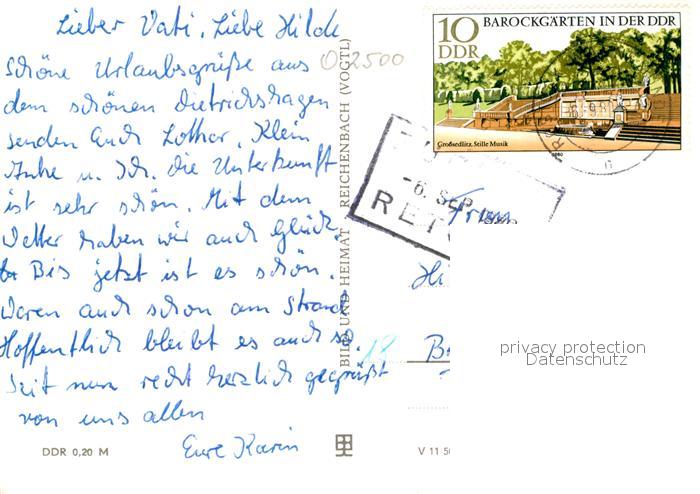 Lieber Vati, Liebe Hilde
Schöne Urlaubsgrüße aus
dem schönen Dietrichshagen
senden Euch Lothar, Klein
Anke u. Ich. Die Unterkunft
ist sehr schön. Mit dem
Wetter haben wir auch Glück.
Bis jetzt ist es schön.
Waren auch schon am Strand
Hoffentlich bleibt es auch so.
Seit nun recht herzlich gegrüßt
von uns allen
Eure Karin
DDR 0,20 M
BILD UND HEIMAT REICHENBACH (VOGTL)
02500
10
DDR
BAROCKGÄRTEN IN DER DDR
Großsedlitz, Stille Musik
1980
-6. SEP.
RET
Frau
Hi
18 B
V 11 50
privacy protection
Datenschutz